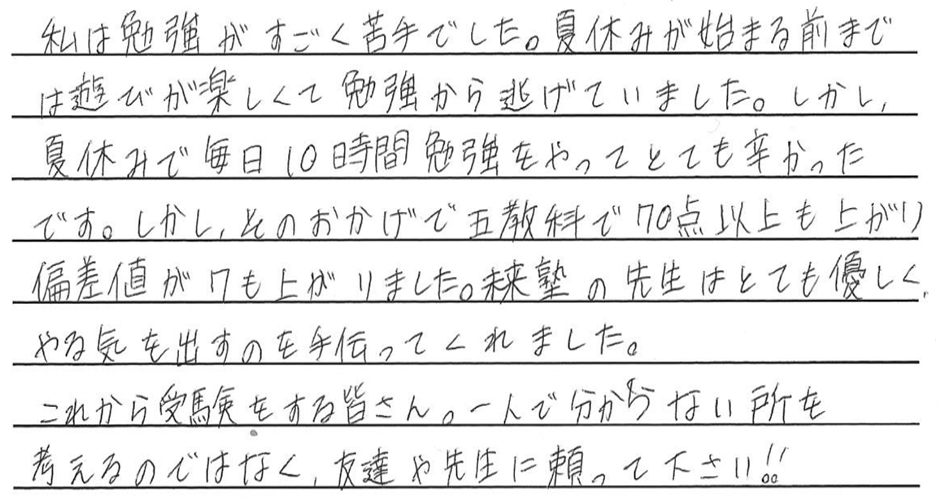 私は勉強がすごく苦手でした。夏休みが始まる前まで
は遊びが楽しくて勉強から逃げていました。しかし,
夏休みで毎日10時間勉強をやってとても辛かった
です。しかし,そのおかげで五教科で70点以上も上がり
偏差値が7も上がりました。未来塾の先生はとても優しく,
やる気を出すのを手伝ってくれました。
これから受験をする皆さん。一人で分からない所を
考えるのではなく,友達や先生に頼って下さい!!